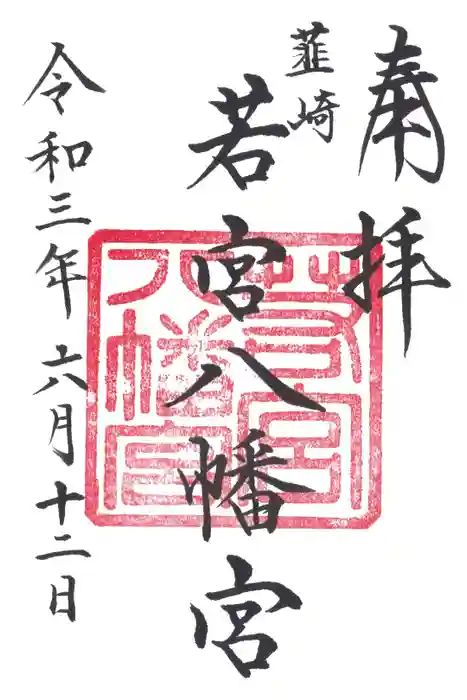 奉拝
韮崎
若宮八幡宮
令和三年六月十二日
若宮
八幡宮